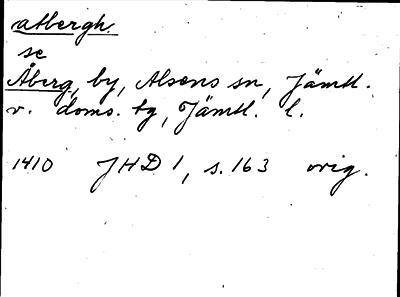 atbergh.
se
Åberg, by, Alsens sn, Jämtl.
v. doms. tg, Jämtl. l.
1410 JHD 1, s. 163 orig.